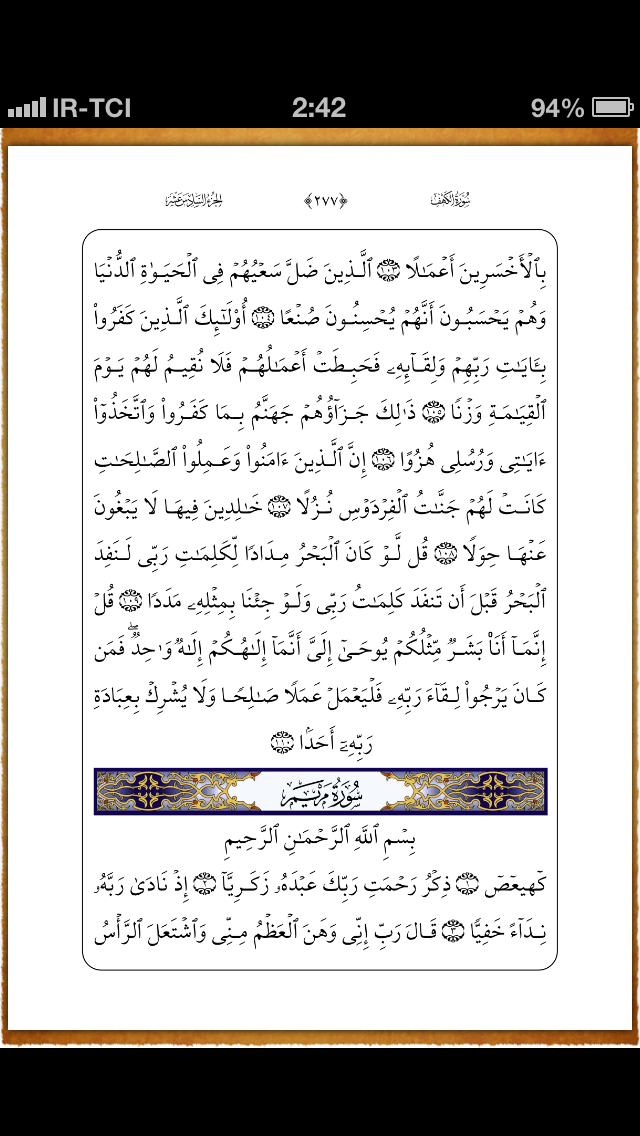 IR-TCI 2:42 94%
سُورَةُ الكَهْفِ ﴿٢٧٧﴾ الجُزْءُ السَّادِسَ عَشَرَ
بِٱلۡأَخۡسَرِينَ أَعۡمَٰلًا ١٠٣ ٱلَّذِينَ ضَلَّ سَعۡيُهُمۡ فِى ٱلۡحَيَوٰةِ ٱلدُّنۡيَا
وَهُمۡ يَحۡسَبُونَ أَنَّهُمۡ يُحۡسِنُونَ صُنۡعًا ١٠٤ أُوْلَٰٓئِكَ ٱلَّذِينَ كَفَرُواْ
بِـَٔايَٰتِ رَبِّهِمۡ وَلِقَآئِهِۦ فَحَبِطَتۡ أَعۡمَٰلُهُمۡ فَلَا نُقِيمُ لَهُمۡ يَوۡمَ
ٱلۡقِيَٰمَةِ وَزۡنٗا ١٠٥ ذَٰلِكَ جَزَآؤُهُمۡ جَهَنَّمُ بِمَا كَفَرُواْ وَٱتَّخَذُوٓاْ
ءَايَٰتِى وَرُسُلِى هُزُوًا ١٠٦ إِنَّ ٱلَّذِينَ ءَامَنُواْ وَعَمِلُواْ ٱلصَّٰلِحَٰتِ
كَانَتۡ لَهُمۡ جَنَّٰتُ ٱلۡفِرۡدَوۡسِ نُزُلًا ١٠٧ خَٰلِدِينَ فِيهَا لَا يَبۡغُونَ
عَنۡهَا حِوَلٗا ١٠٨ قُل لَّوۡ كَانَ ٱلۡبَحۡرُ مِدَادٗا لِّكَلِمَٰتِ رَبِّى لَنَفِدَ
ٱلۡبَحۡرُ قَبۡلَ أَن تَنفَدَ كَلِمَٰتُ رَبِّى وَلَوۡ جِئۡنَا بِمِثۡلِهِۦ مَدَدٗا ١٠٩ قُلۡ
إِنَّمَآ أَنَا۠ بَشَرٞ مِّثۡلُكُمۡ يُوحَىٰٓ إِلَىَّ أَنَّمَآ إِلَٰهُكُمۡ إِلَٰهٞ وَٰحِدٞۖ فَمَن
كَانَ يَرۡجُواْ لِقَآءَ رَبِّهِۦ فَلۡيَعۡمَلۡ عَمَلٗا صَٰلِحٗا وَلَا يُشۡرِكۡ بِعِبَادَةِ
رَبِّهِۦٓ أَحَدَۢا ١١٠
سُورَةُ مَرْيَمَ
بِسۡمِ ٱللَّهِ ٱلرَّحۡمَٰنِ ٱلرَّحِيمِ
كٓهيعٓصٓ ١ ذِكۡرُ رَحۡمَتِ رَبِّكَ عَبۡدَهُۥ زَكَرِيَّآ ٢ إِذۡ نَادَىٰ رَبَّهُۥ
نِدَآءً خَفِيّٗا ٣ قَالَ رَبِّ إِنِّى وَهَنَ ٱلۡعَظۡمُ مِنِّى وَٱشۡتَعَلَ ٱلرَّأۡسُ